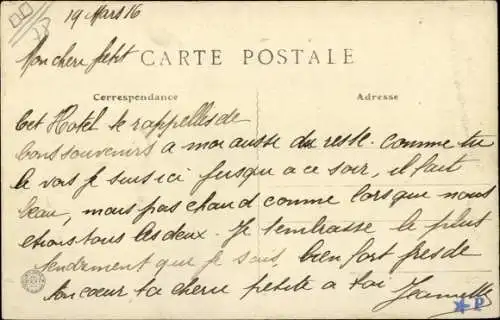 19 Mars 16
Mon cheri petit
CARTE POSTALE
Correspondance
Adresse
Cet Hotel te rappelles de
bons souvenirs a moi aussi du reste. comme tu
le vois je suis ici jusqu a ce soir, il fait
beau, mais pas chaud comme lorsque nous
etions tous les deux. Je t'embrasse le plus
tendrement que je sais, bien fort pres de
ton coeur ta cherie petite a toi Jeannette
P